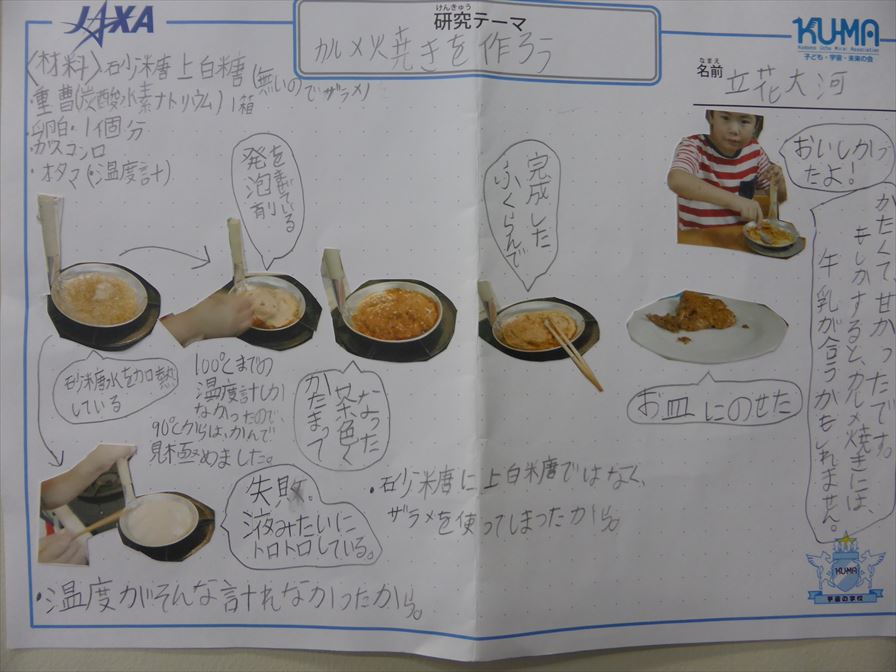 JAXA
けんきゅう
研究テーマ
カルメ焼きを作ろう
KU-MA
Kodomo Uchu Mirai Association
子ども・宇宙・未来の会
なまえ
名前
立花大河
〈材料〉砂糖上白糖(無いのでザラメ)
・重曹(炭酸水素ナトリウム)1箱
・卵白・1個分
・ガスコンロ
・オタマ(・温度計)
発泡剤
を混ぜている
完成した
ふくらんで
おいしかっ
たよ!
かたくてせかったです。
もしかすると、カルメ焼きには、
牛乳が合うかもしれません。
砂糖水を加熱
している
100℃までの
温度計しか
なかったので、
90℃からは、かんで
見極めました。
なった
茶色く
かたまって
お皿にのせた
失敗。
液みたいに
トロトロしている。
・砂糖に上白糖ではなく、
ザラメを使ってしまったから。
・温度がそんな計れなかったから。
KU-MA
宇宙の学校